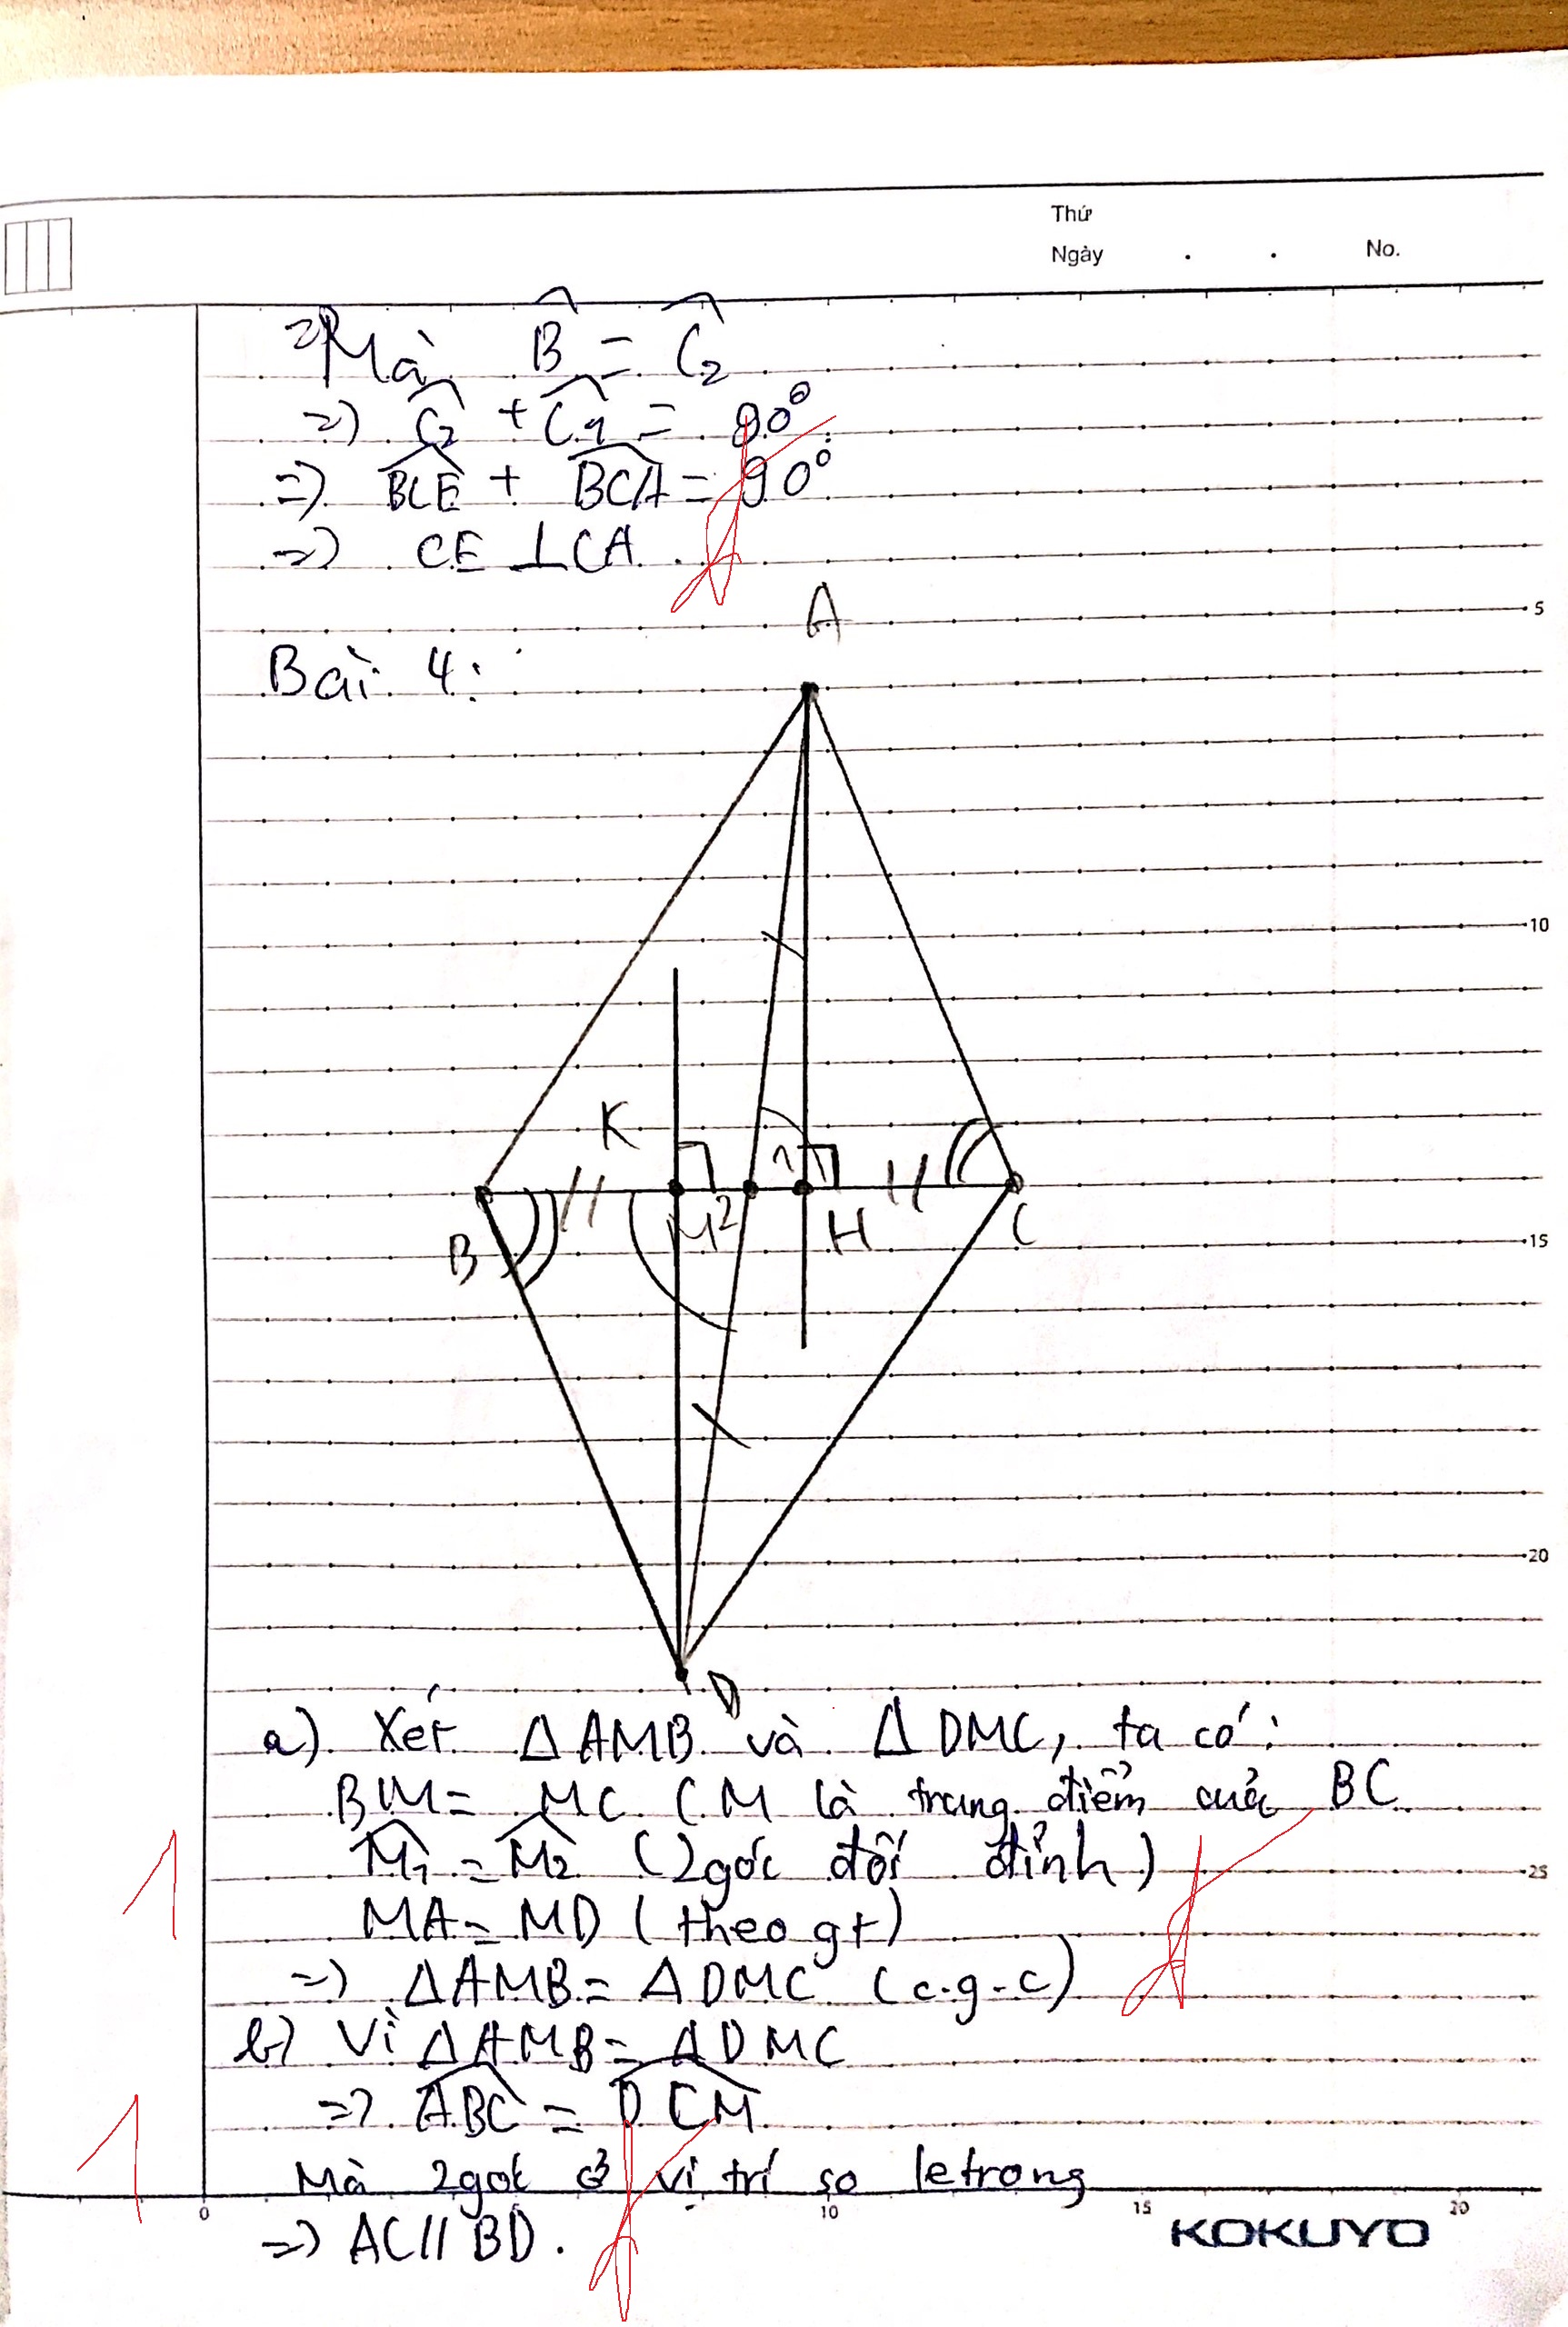 Thứ
Ngày . . No.
=) Mà B̂ = Ĉ₂
=) Ĉ₂ + Ĉ₁ = 90°
=) BCE + BCA = 90°
=) CE ⊥ CA.
A
Bài 4:
5
10
K
1
M 2
H
B
C
15
20
D
a) Xét Δ AMB và Δ DMC, ta có:
BM = MC (M là trung điểm của BC
1
M̂₁ = M̂₂ (2 góc đối đỉnh)
25
MA = MD (theo gt)
=) ΔAMB = ΔDMC (c.g.c)
b) Vì ΔAMB = ΔDMC
=) ABC = DCM
1
Mà 2 góc ở vị trí so le trong
0 5 10 15 20
=) AC // BD.
KOKUYO